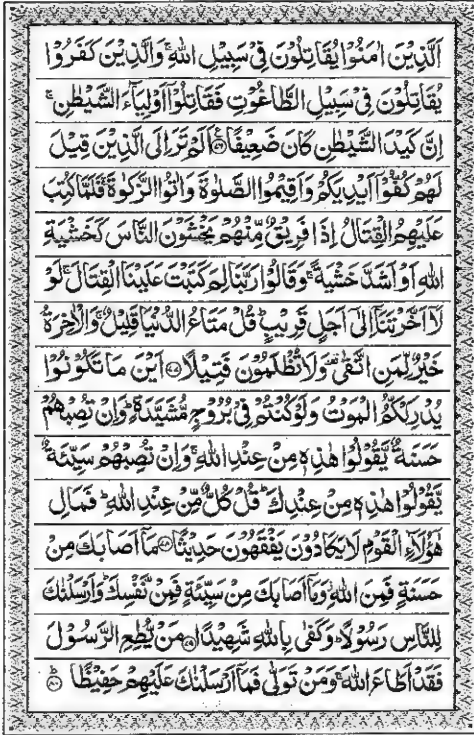 اَلَّذِيْنَ اٰمَنُوْا يُقَاتِلُوْنَ فِيْ سَبِيْلِ اللّٰهِ ۚ وَالَّذِيْنَ كَفَرُوْا
يُقَاتِلُوْنَ فِيْ سَبِيْلِ الطَّاغُوْتِ فَقَاتِلُوْٓا اَوْلِيَآءَ الشَّيْطٰنِ ۚ
اِنَّ كَيْدَ الشَّيْطٰنِ كَانَ ضَعِيْفًا ﴿۷۶﴾ اَلَمْ تَرَ اِلَى الَّذِيْنَ قِيْلَ
لَهُمْ كُفُّوْٓا اَيْدِيَكُمْ وَاَقِيْمُوا الصَّلٰوةَ وَاٰتُوا الزَّكٰوةَ ۚ فَلَمَّا كُتِبَ
عَلَيْهِمُ الْقِتَالُ اِذَا فَرِيْقٌ مِّنْهُمْ يَخْشَوْنَ النَّاسَ كَخَشْيَةِ
اللّٰهِ اَوْ اَشَدَّ خَشْيَةً ۚ وَقَالُوْا رَبَّنَا لِمَ كَتَبْتَ عَلَيْنَا الْقِتَالَ ۚ لَوْ
لَآ اَخَّرْتَنَآ اِلٰٓى اَجَلٍ قَرِيْبٍ ؕ قُلْ مَتَاعُ الدُّنْيَا قَلِيْلٌ ۚ وَالْاٰخِرَةُ
خَيْرٌ لِّمَنِ اتَّقٰى ۟ وَلَا تُظْلَمُوْنَ فَتِيْلًا ﴿۷۷﴾ اَيْنَ مَا تَكُوْنُوْا
يُدْرِكْكُّمُ الْمَوْتُ وَلَوْ كُنْتُمْ فِيْ بُرُوْجٍ مُّشَيَّدَةٍ ؕ وَاِنْ تُصِبْهُمْ
حَسَنَةٌ يَّقُوْلُوْا هٰذِهٖ مِنْ عِنْدِ اللّٰهِ ۚ وَاِنْ تُصِبْهُمْ سَيِّئَةٌ
يَّقُوْلُوْا هٰذِهٖ مِنْ عِنْدِكَ ؕ قُلْ كُلٌّ مِّنْ عِنْدِ اللّٰهِ ؕ فَمَالِ
هٰٓؤُلَآءِ الْقَوْمِ لَا يَكَادُوْنَ يَفْقَهُوْنَ حَدِيْثًا ﴿۷۸﴾ مَآ اَصَابَكَ مِنْ
حَسَنَةٍ فَمِنَ اللّٰهِ ۫ وَمَآ اَصَابَكَ مِنْ سَيِّئَةٍ فَمِنْ نَّفْسِكَ ؕ وَاَرْسَلْنٰكَ
لِلنَّاسِ رَسُوْلًا ؕ وَكَفٰى بِاللّٰهِ شَهِيْدًا ﴿۷۹﴾ مَنْ يُّطِعِ الرَّسُوْلَ
فَقَدْ اَطَاعَ اللّٰهَ ۚ وَمَنْ تَوَلّٰى فَمَآ اَرْسَلْنٰكَ عَلَيْهِمْ حَفِيْظًا ﴿۸۰﴾